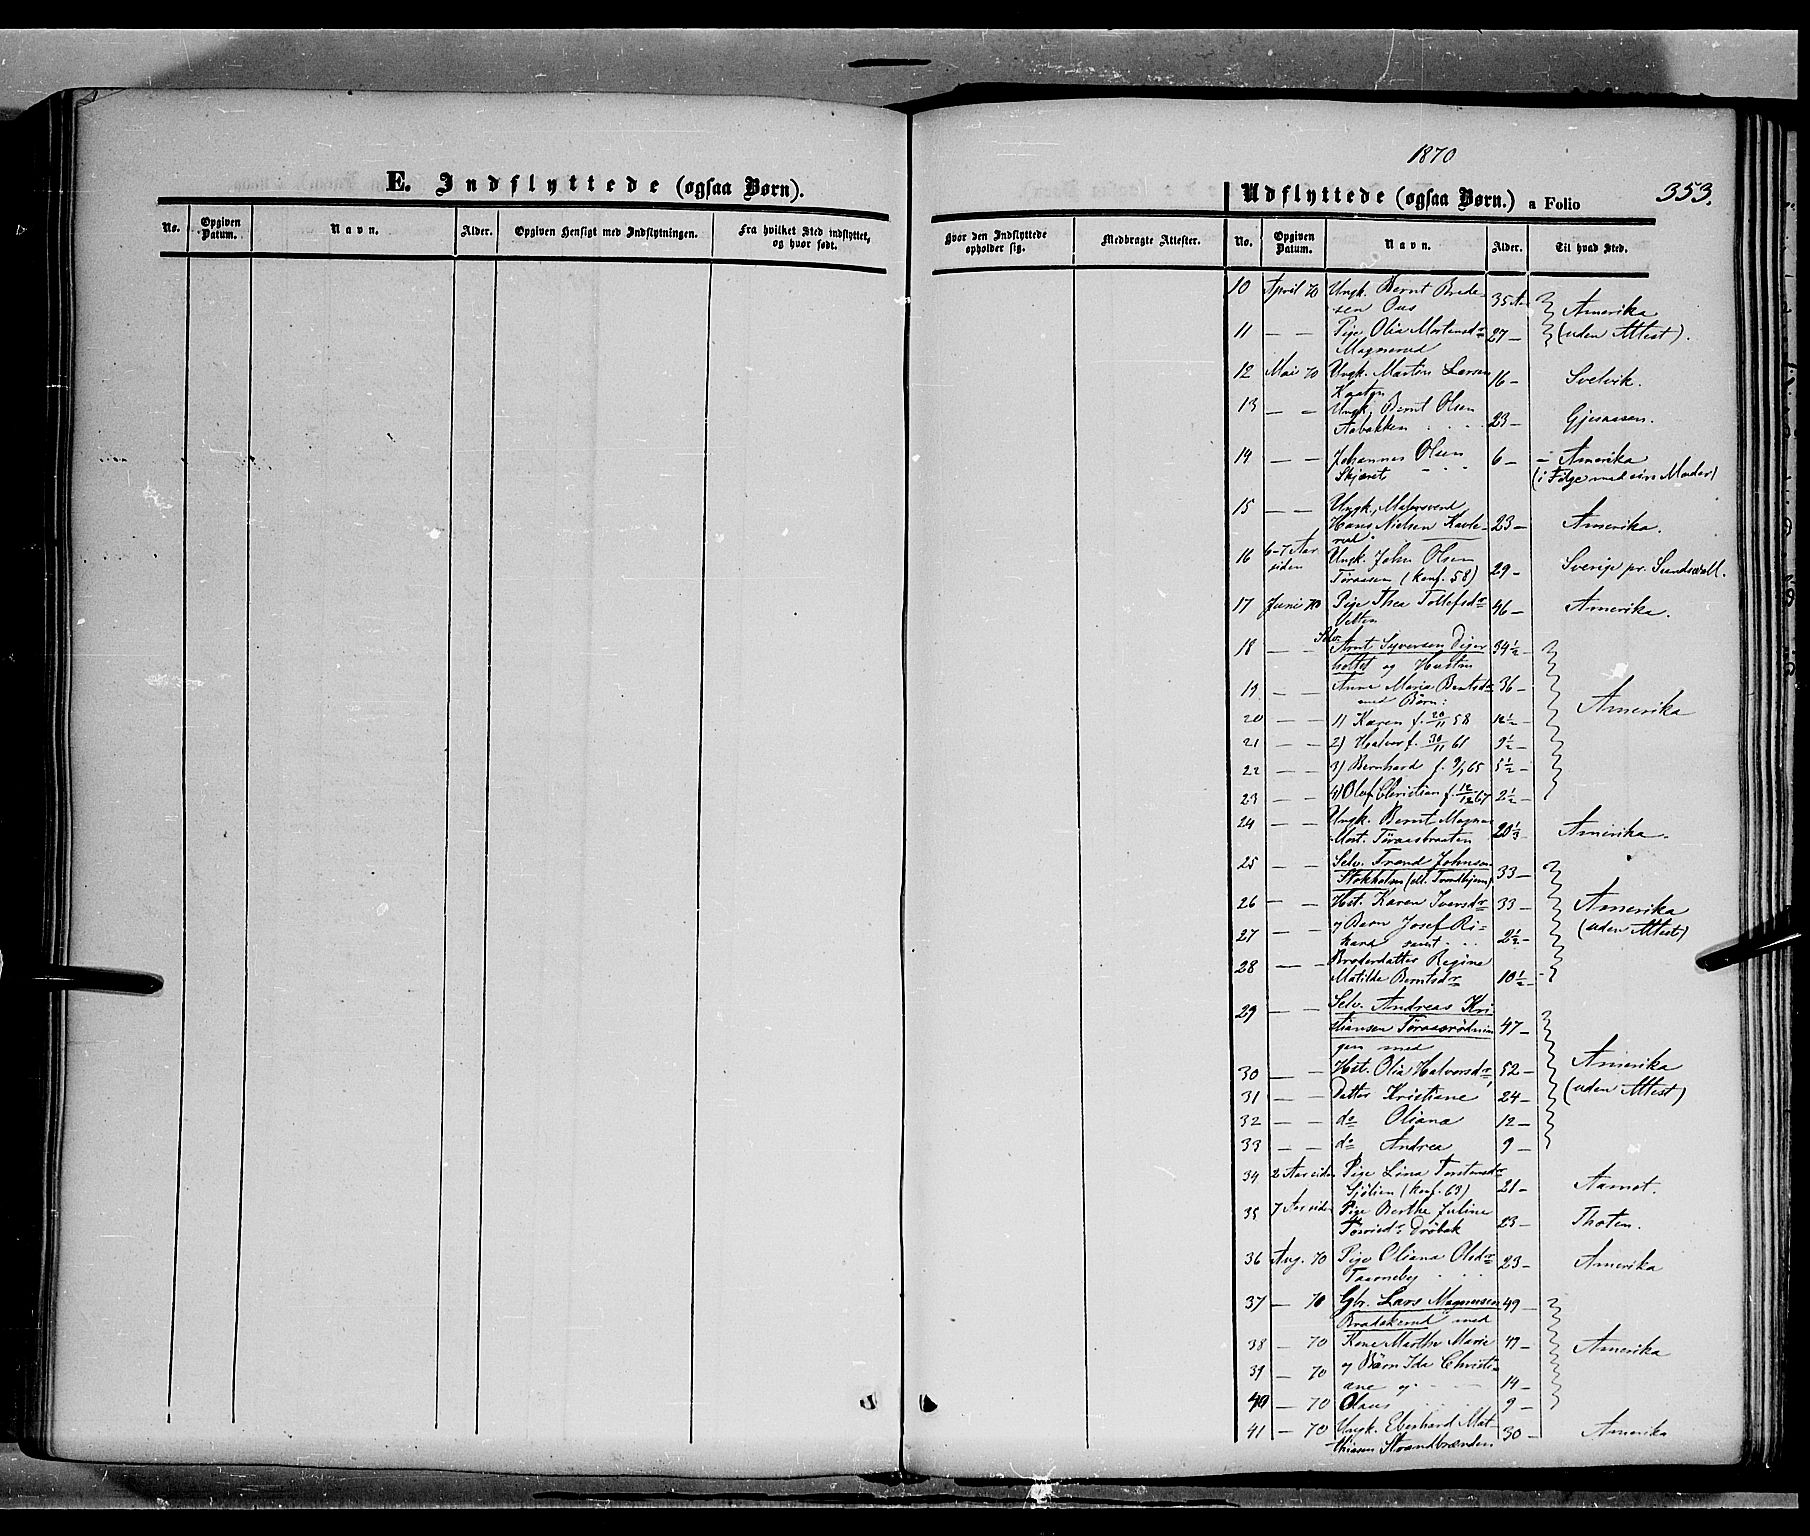 1870
353.
E. Indflyttede (ogsaa Børn).
Udflyttede (ogsaa Børn.) a Folio
No. Opgiven Datum. Navn. Alder. Opgiven Hensigt med Indflytningen. Fra hvilket Sted indflyttet, og hvor født.
Hvor den Indflyttede opholder sig. Medbragte Attester. No. Opgiven Datum. Navn. Alder. Til hvad Sted.
10 April 70 Ungk. Bernt Brede-
sen Ous 35 Aar Amerika
11 — — Pige Olia Mortensdr 27 — (uden Attest).
Magnerud
12 Mai 70 Ungk. Martin Larsen 16 — Svelvik.
13 — — Ungk. Bernt Olsen
Aabakken 23 — Gjesaasen.
14 — — Johannes Olsen 6 — Amerika
Skjæret (i Følge med sin Moder)
15 — — Ungk. Malersvend
Hans Nielsen Kavle- 23 — Amerika.
rud.
16 6-7 Aar siden Ungk. John Olsen
Töraasen (konf. 58) 29 — Sverige pr. Sundsvall.
17 Juni 70 Pige Thea Tollefsdr 46 — Amerika.
Velten
18 — — Selv. Arnt Syversen Diger 34½ —
holtet og Hustru
19 — — Anne Maria Berntsdr 36 —
med Børn: Amerika
20 — — 1) Karen f. 20/11 58 12½ —
21 — — 2) Halvor f. 30/11 61 9½ —
22 — — 3) Bernhard f. 9/1 65 5½ —
23 — — 4) Oluf Christian f. 12/12 67 2½ —
24 — — Ungk. Bernt Magnus
Mort. Töraasbraaten 20⅓ — Amerika.
25 — — Selv. Trond Johnsen
Stokholm (ell. Trondhjem) 33 —
26 — — Hst. Karen Iversdr 33 — Amerika
27 — — og Barn Josef Ri- (uden Attest)
kard samt 2½ —
28 — — Broderdatter Regine
Matilde Berntsdr 10½ —
29 Selv. Andreas Kri-
stiansen Töraasrödnin 47 —
gen med
30 — — Hst. Olia Halvorsdr 52 — Amerika
31 — — Datter Kristiane 24 — (uden Attest)
32 — — do Oliana 12 —
33 — — do Andrea 9 —
34 2 Aar siden Pige Lina Torstensdr
Sjölien (konf. 63) 21 — Aamot.
35 7 Aar siden Pige Berthe Juline
Dröbak 23 — Thoten.
36 Aug. 70 Pige Oliana Olsdr 23 — Amerika
Taarneby
37 — 70 Gbr. Lars Magnussen 49 —
Bradakerud med
38 — 70 Kone Marthe Marie 49 — Amerika
39 — 70 og Børn Ida Christi-
ane og 14 —
40 — 70 Olaus 9 —
41 — 70 Ungk. Eberhard Mat-
thiasen Strandbrænden 30 — Amerika